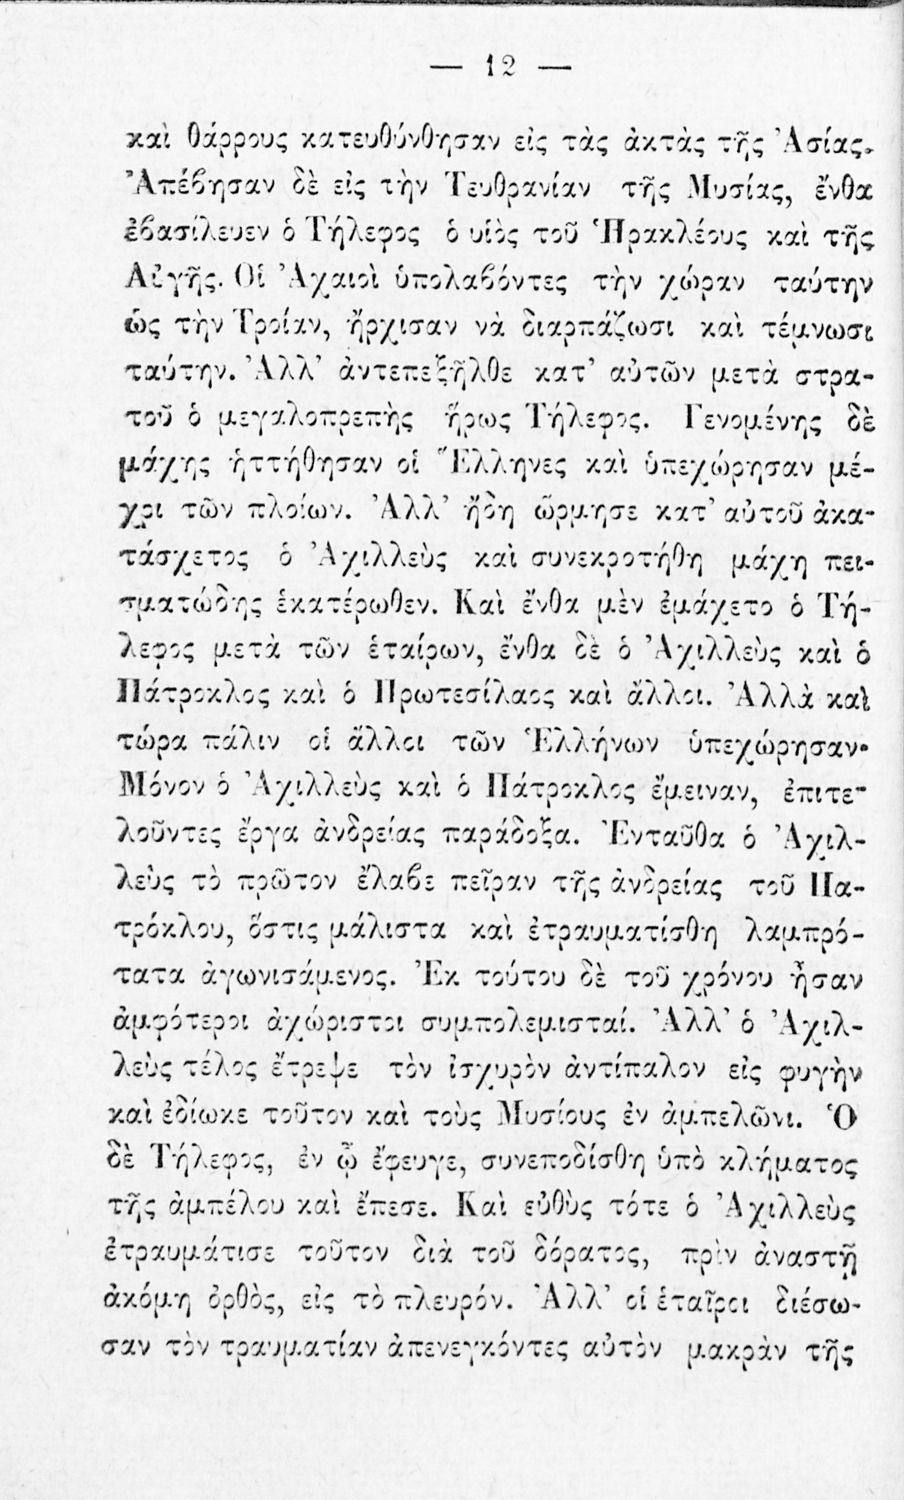 — 12 —
καὶ θάρρους κατευθύνθησαν εἰς τὰς ἀκτὰς τῆς Ἀσίας.
Ἀπέβησαν δὲ εἰς τὴν Τευθρανίαν τῆς Μυσίας, ἔνθα
ἐβασίλευεν ὁ Τήλεφος ὁ υἱὸς τοῦ Ἡρακλέους καὶ τῆς
Αὐγῆς. Οἱ Ἀχαιοὶ ὑπολαβόντες τὴν χώραν ταύτην
ὡς τὴν Τροίαν, ἤρχισαν νὰ διαρπάζωσι καὶ τέμνωσι
ταύτην. Ἀλλ’ ἀντεπεξῆλθε κατ’ αὐτῶν μετὰ στρα-
τοῦ ὁ μεγαλοπρεπὴς ἥρως Τήλεφος. Γενομένης δὲ
μάχης ἡττήθησαν οἱ Ἕλληνες καὶ ὑπεχώρησαν μέ-
χρι τῶν πλοίων. Ἀλλ’ ἤδη ὥρμησε κατ’ αὐτοῦ ἀκα-
τάσχετος ὁ Ἀχιλλεὺς καὶ συνεκροτήθη μάχη πει-
σματώδης ἑκατέρωθεν. Καὶ ἔνθα μὲν ἐμάχετο ὁ Τή-
λεφος μετὰ τῶν ἑταίρων, ἔνθα δὲ ὁ Ἀχιλλεὺς καὶ ὁ
Πάτροκλος καὶ ὁ Πρωτεσίλαος καὶ ἄλλοι. Ἀλλὰ καὶ
τώρα πάλιν οἱ ἄλλοι τῶν Ἑλλήνων ὑπεχώρησαν·
Μόνον ὁ Ἀχιλλεὺς καὶ ὁ Πάτροκλος ἔμειναν, ἐπιτε-
λοῦντες ἔργα ἀνδρείας παράδοξα. Ἐνταῦθα ὁ Ἀχιλ-
λεὺς τὸ πρῶτον ἔλαβε πεῖραν τῆς ἀνδρείας τοῦ Πα-
τρόκλου, ὅστις μάλιστα καὶ ἐτραυματίσθη λαμπρό-
τατα ἀγωνισάμενος. Ἐκ τούτου δὲ τοῦ χρόνου ἦσαν
ἀμφότεροι ἀχώριστοι συμπολεμισταί. Ἀλλ’ ὁ Ἀχιλ-
λεὺς τέλος ἔτρεψε τὸν ἰσχυρὸν ἀντίπαλον εἰς φυγὴν
καὶ ἐδίωκε τοῦτον καὶ τοὺς Μυσίους ἐν ἀμπελῶνι. Ὁ
δὲ Τήλεφος, ἐν ᾧ ἔφευγε, συνεποδίσθη ὑπὸ κλήματος
τῆς ἀμπέλου καὶ ἔπεσε. Καὶ εὐθὺς τότε ὁ Ἀχιλλεὺς
ἐτραυμάτισε τοῦτον διὰ τοῦ δόρατος, πρὶν ἀναστῇ
ἀκόμη ὀρθὸς, εἰς τὸ πλευρόν. Ἀλλ’ οἱ ἑταῖροι διέσω-
σαν τὸν τραυματίαν ἀπενεγκόντες αὐτὸν μακρὰν τῆς